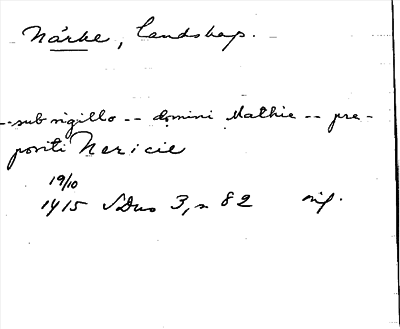 Närke, Landskap.
--sub sigillo -- domini Mathie -- pre-
positi Nericie
19/10
1415 SDns 3, s 82 orig.